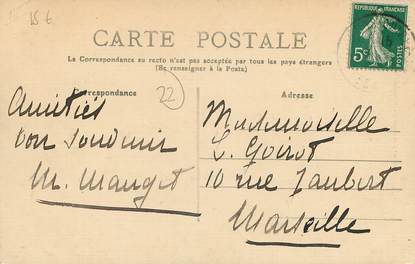 15 €
RÉPUBLIQUE FRANÇAISE
5c
POSTES
CARTE POSTALE
La Correspondance au recto n'est pas acceptée par tous les pays étrangers
(Se renseigner à la Poste)
Correspondance
22
Adresse
Amitiés
bon souvenir
M. Mauget
Mademoiselle
L. Goirot
10 rue Jaubert
Marseille